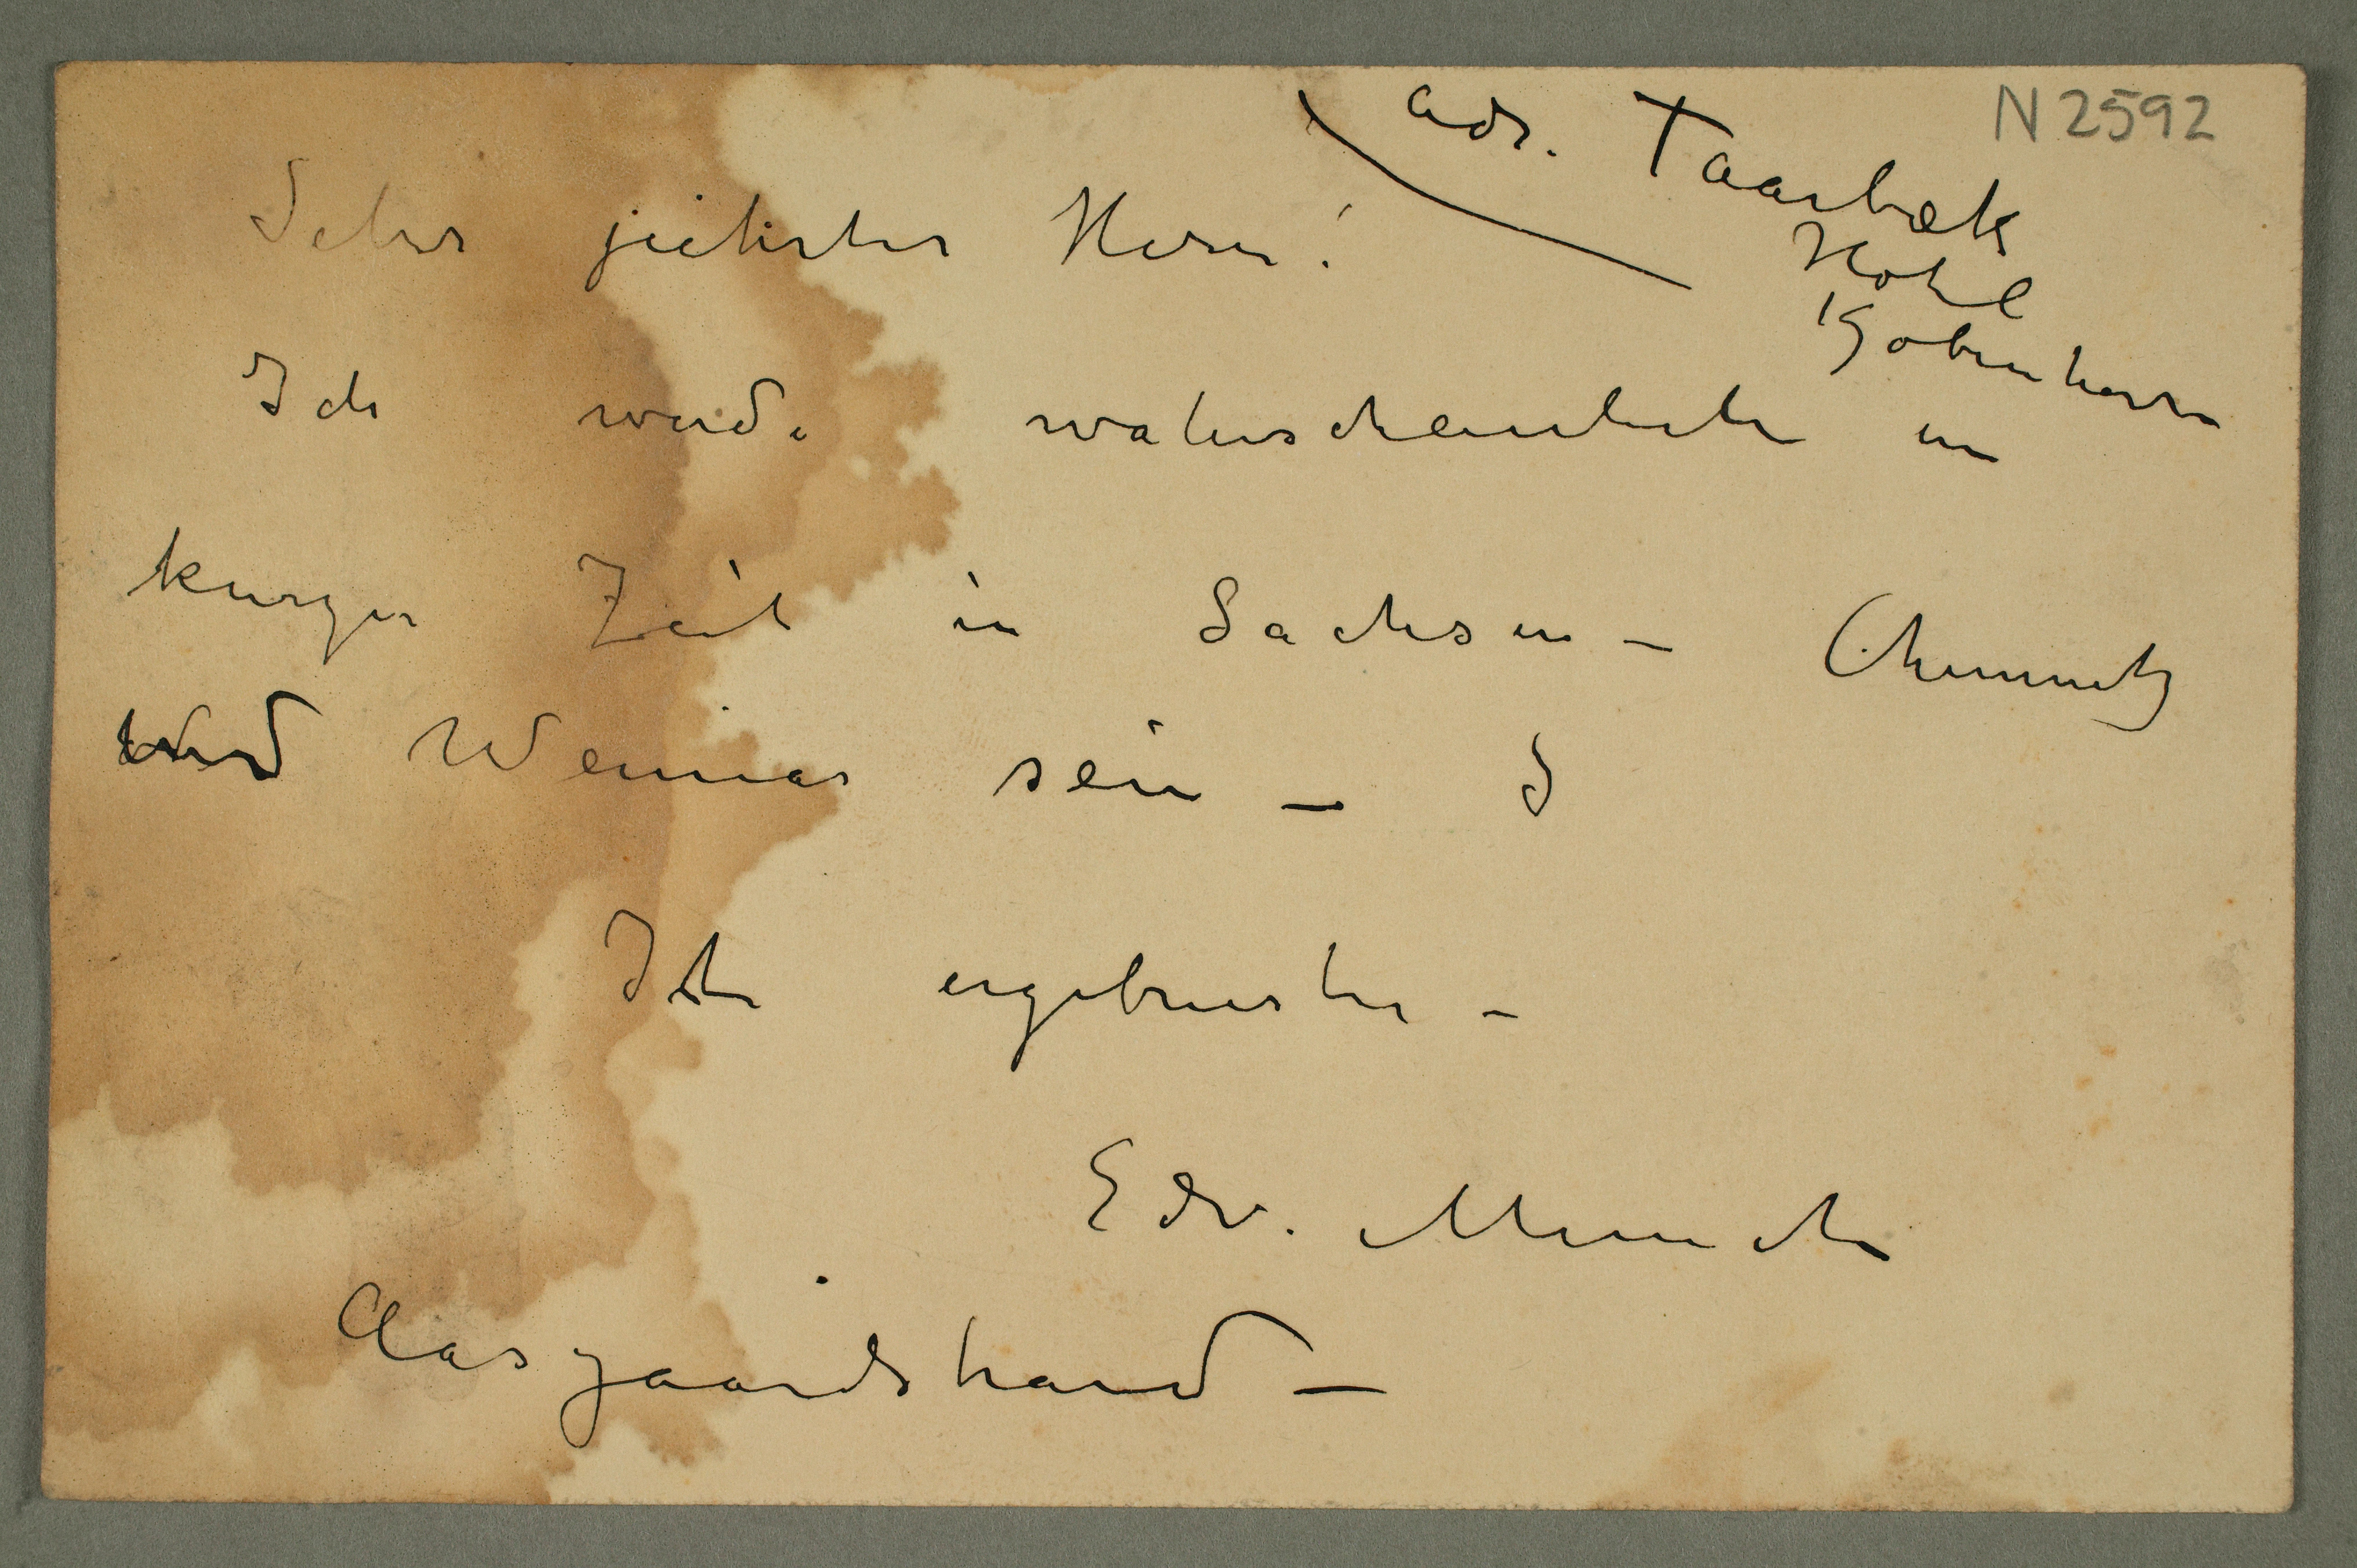 N 2592
Adr. Taarbæk
Hotel
Kjøbenhavn
Sehr geehrter Herr!
Ich werde wahrscheinlich in
kurzer Zeit in Sachsen – Chemnitz
und Weimar sein –
Ihr ergebenster –
Edv. Munch
Aasgaardstrand –